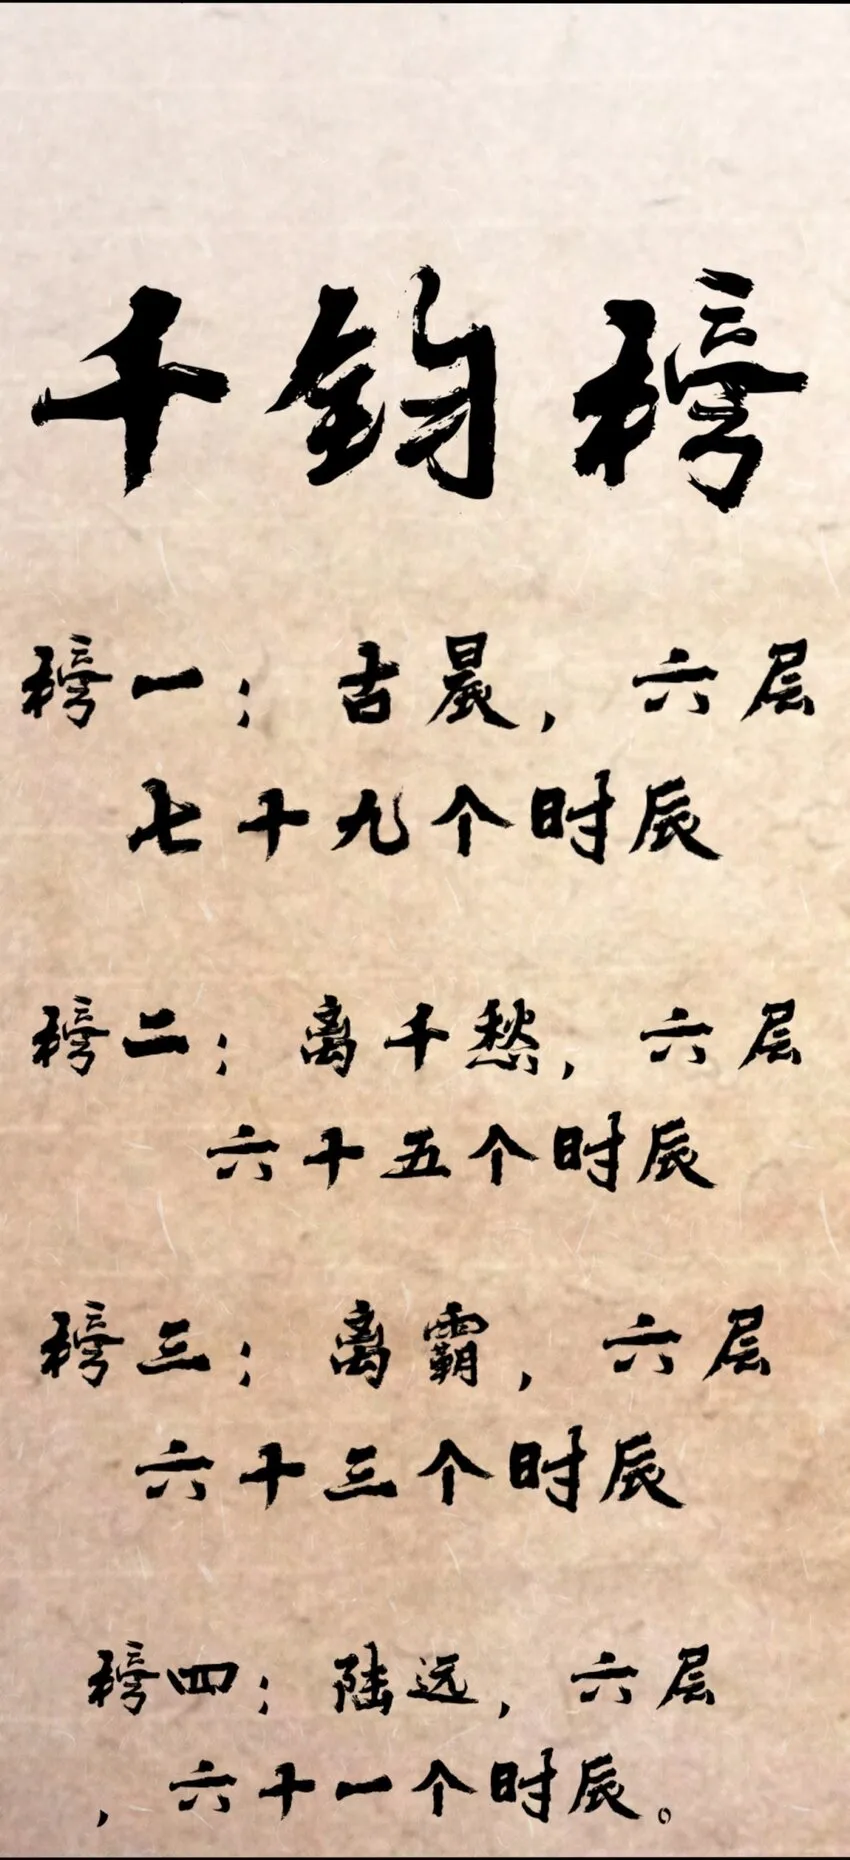 千钧榜
榜一；古晨，六层
七十九个时辰
榜二；离千愁，六层
六十五个时辰
榜三；离霸，六层
六十三个时辰
榜四；陆远，六层
，六十一个时辰。